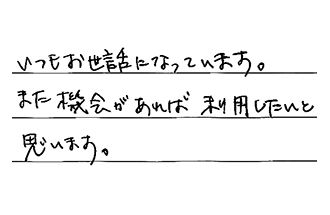 いつもお世話になっています。
また機会があれば利用したいと
思います。